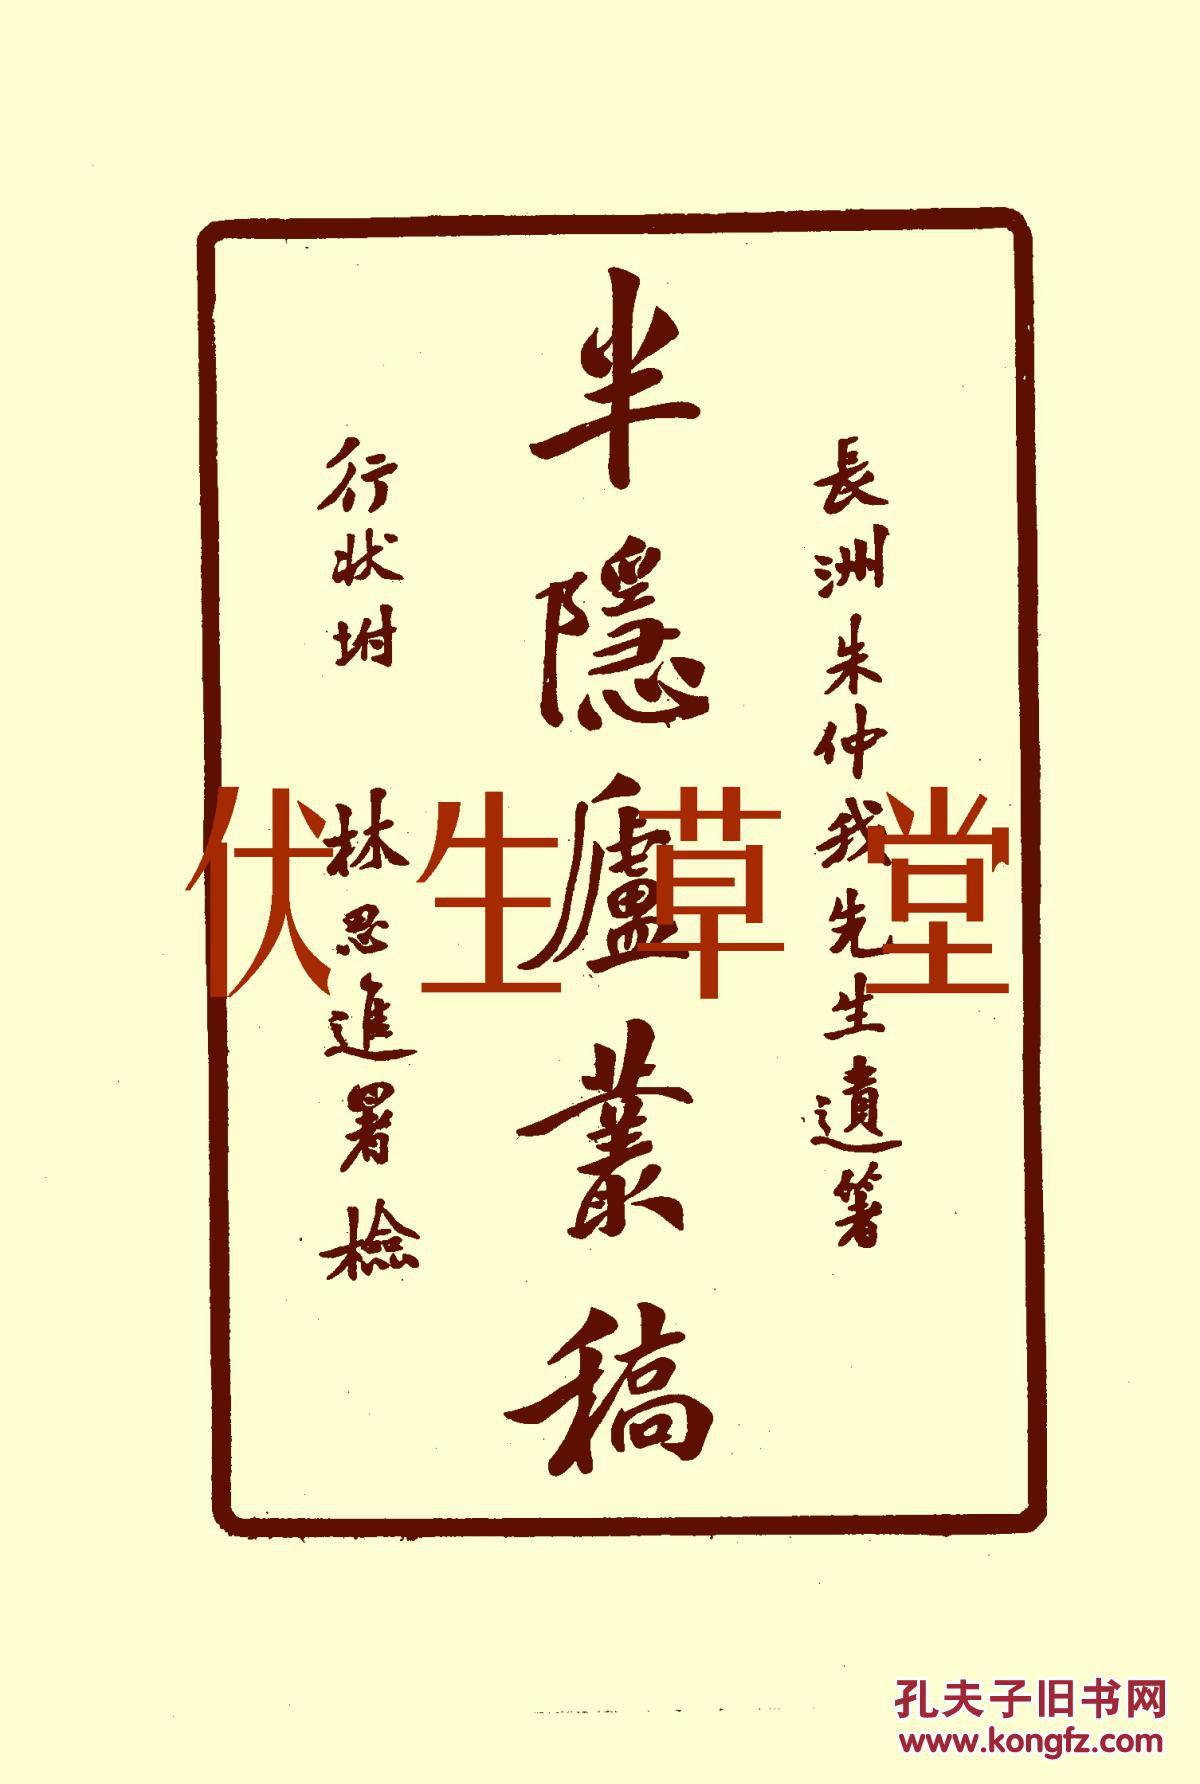 長洲朱仲我先生遺箸
半隱廬叢稿
行狀坿
林思進署檢
伏生草堂
孔夫子旧书网
www.kongfz.com